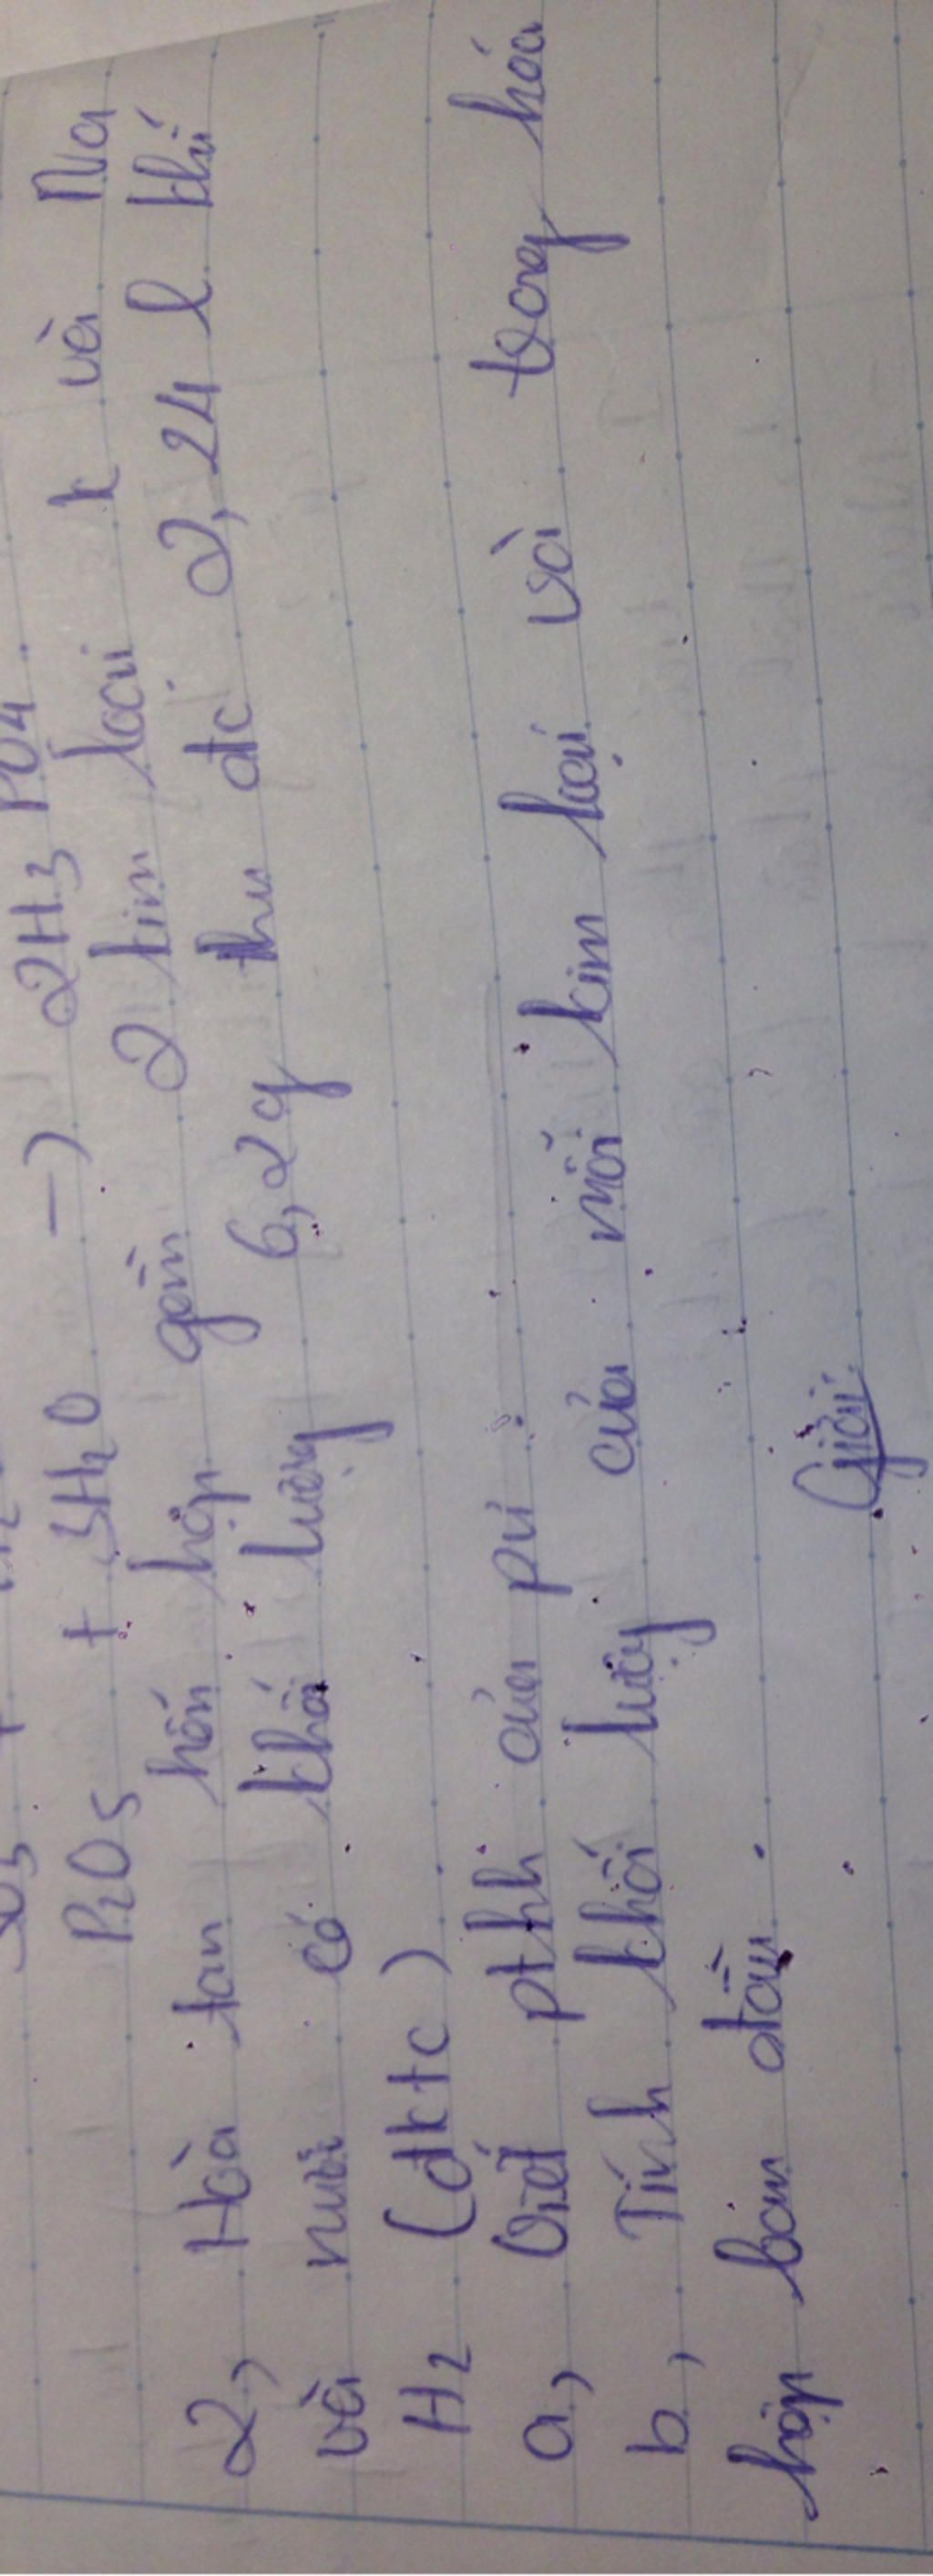 P2O5 + 3H2O -) 2H3PO4.
2, Hòa tan hỗn hợp gồm 2 kim loại K và Na
và nước có khối lượng 6,2g thu đc 2,24 l khí
H2 (đktc)
a, Viết pthh của pư.
b, Tính khối lượng của mỗi kim loại và trong hóa
hợp ban đầu.
Giải: